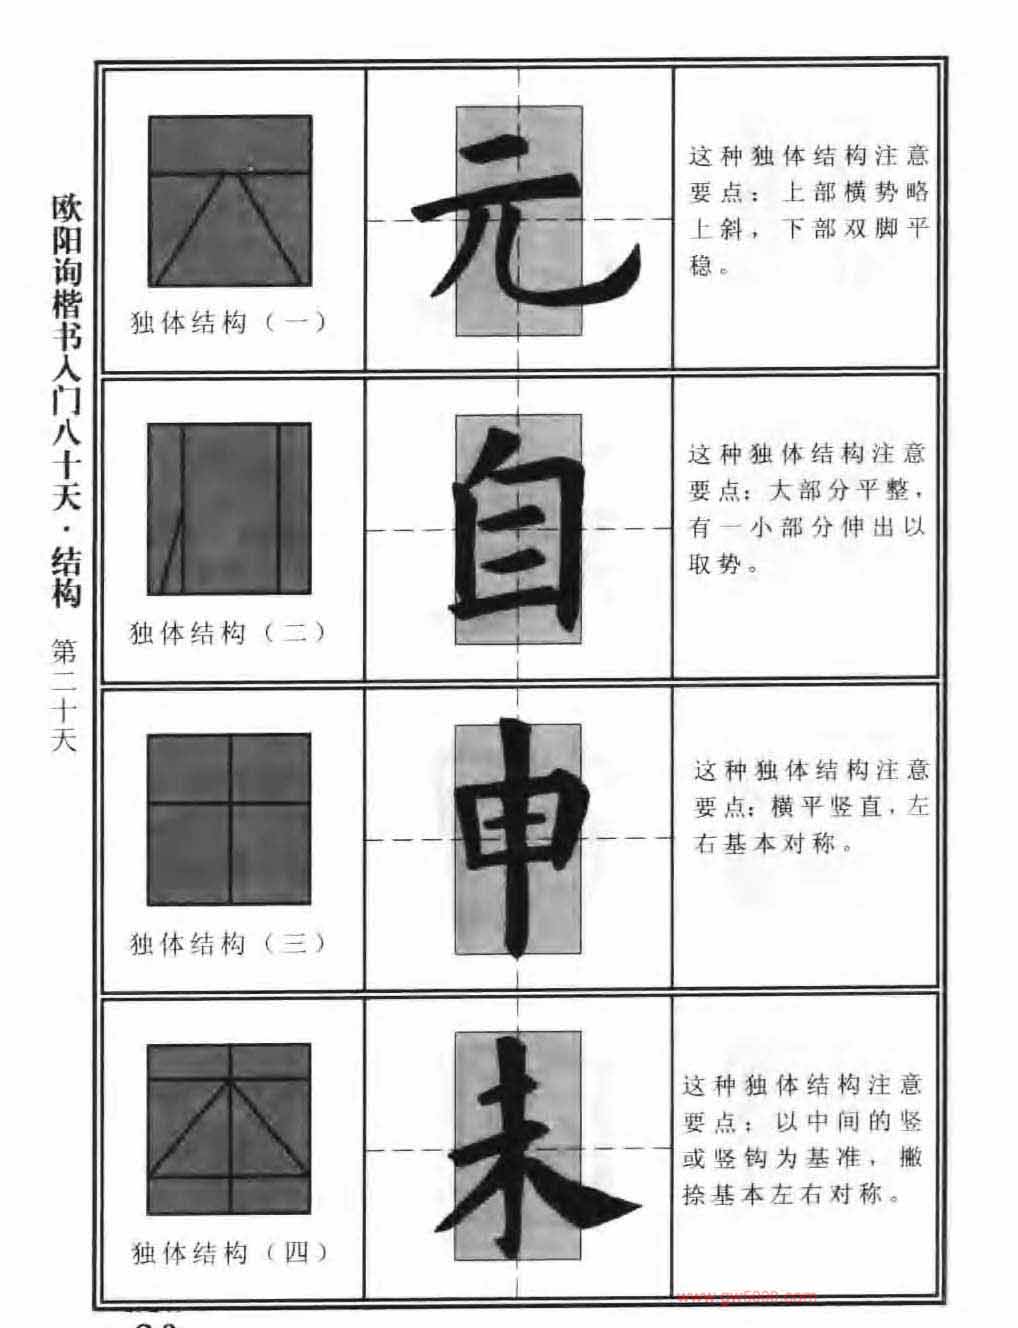 欧阳询楷书入门八十天·结构 第二十天
独体结构（一）
元
这种独体结构注意
要点：上部横势略
上斜，下部双脚平
稳。
独体结构（二）
自
这种独体结构注意
要点：大部分平整，
有一小部分伸出以
取势。
独体结构（三）
申
这种独体结构注意
要点：横平竖直，左
右基本对称。
独体结构（四）
未
这种独体结构注意
要点：以中间的竖
或竖钩为基准，撇
捺基本左右对称。